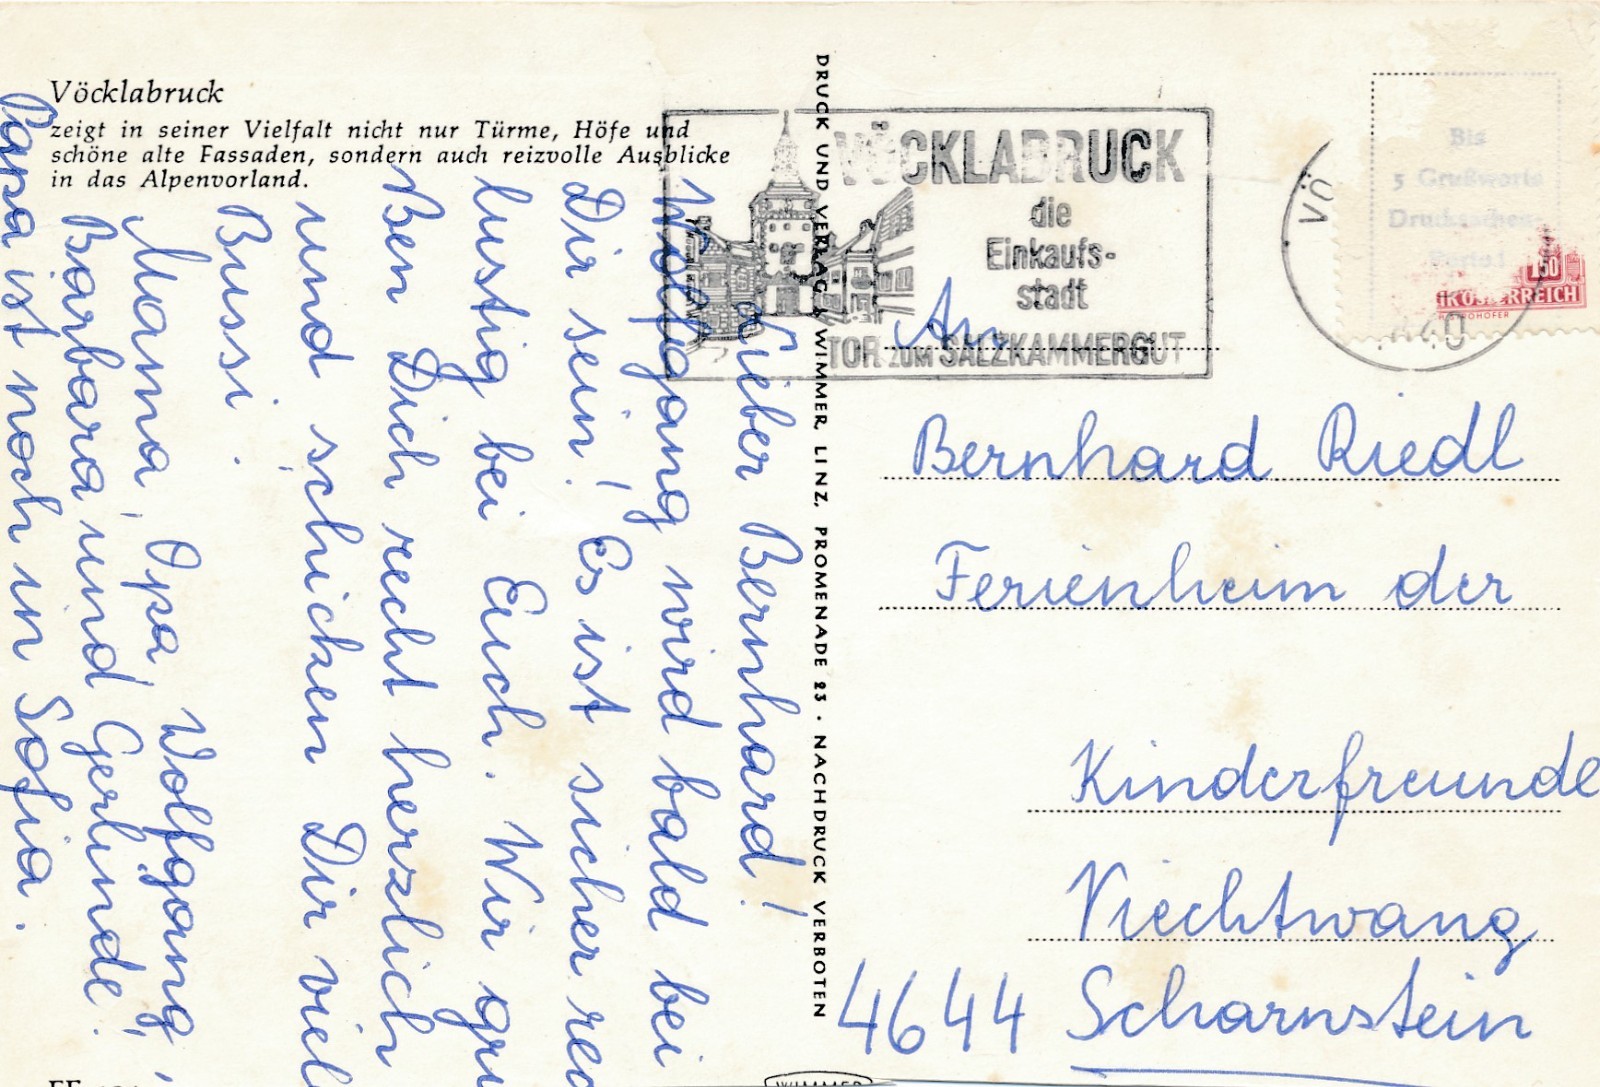 Vöcklabruck
zeigt in seiner Vielfalt nicht nur Türme, Höfe und
schöne alte Fassaden, sondern auch reizvolle Ausblicke
in das Alpenvorland.
Lieber Bernhard!
Wolfgang wird bald bei
Dir sein! Es ist sicher rec
lustig bei Euch. Wir grü
Ben Dich recht herzlich
und schicken Dir viel
Bussi.
Mama, Opa, Wolfgang,
Barbara und Gerlinde!
Papa ist noch in Sofia.
DRUCK UND VERLAG WIMMER, LINZ, PROMENADE 23 · NACHDRUCK VERBOTEN
VÖCKLABRUCK
die
Einkaufs-
stadt
TOR ZUM SALZKAMMERGUT
VÖ
Bis
5 Grußworte
Drucksachen-
Porto!
150
IK ÖSTERREICH
An
Bernhard Riedl
Ferienheim der
Kinderfreunde
Viechtwang
4644 Scharnstein
WIMMER